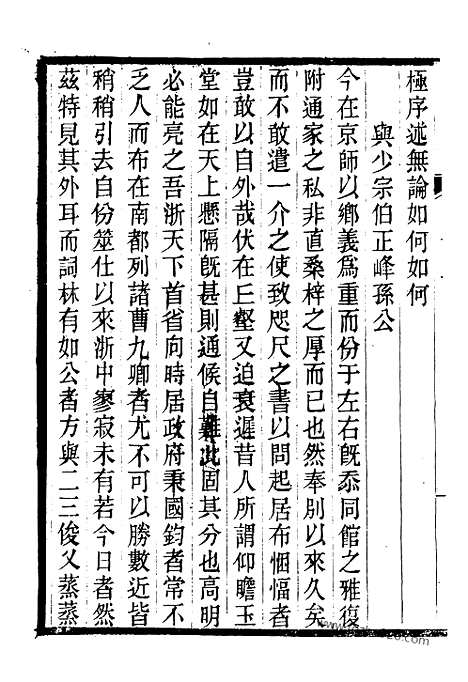 極序述無論如何如何
與少宗伯正峰孫公
今在京師以鄉義爲重而份于左右旣忝同館之雅復
附通家之私非直桑梓之厚而已也然奉別以來久矣
而不敢遣一介之使致咫尺之書以問起居布悃愊者
豈敢以自外哉伏在丘壑又迫衰遲昔人所謂仰瞻玉
堂如在天上懸隔旣甚則通候自難此固其分也高明
必能亮之吾浙天下首省向時居政府秉國鈞者常不
乏人而布在南都列諸曹九卿者尤不可以勝數近皆
稍稍引去自份筮仕以來浙中寥寂未有若今日者然
茲特見其外耳而詞林有如公者方與二三俊乂蒸蒸